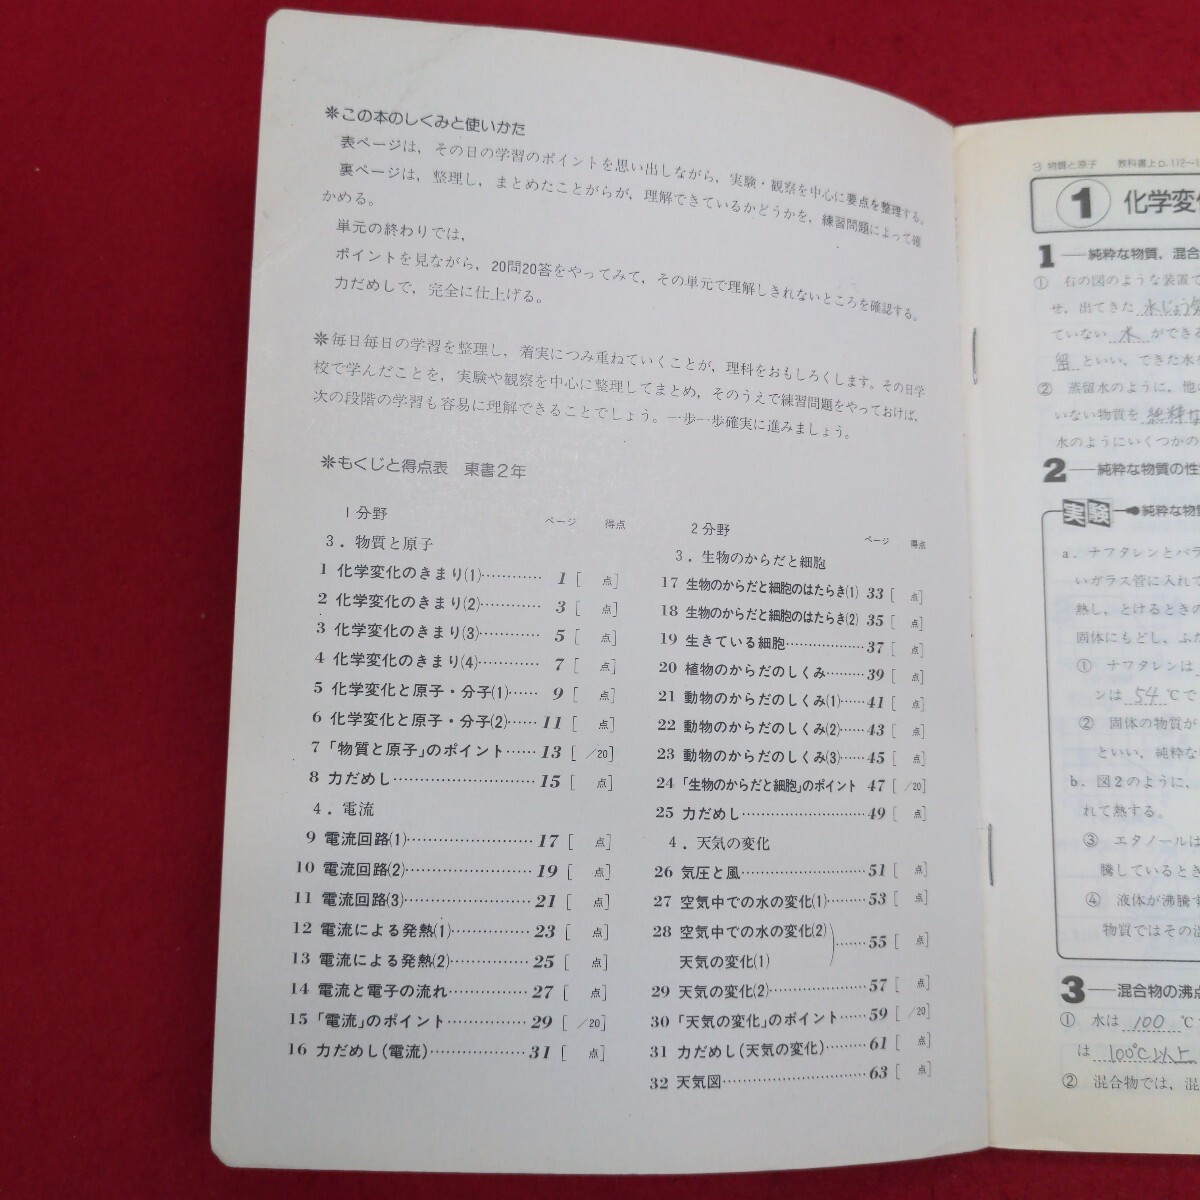 ※この本のしくみと使いかた
表ページは，その日の学習のポイントを思い出しながら，実験・観察を中心に要点を整理する。
裏ページは，整理し，まとめたことがらが，理解できているかどうかを，練習問題によって確
かめる。
単元の終わりでは，
ポイントを見ながら，20問20答をやってみて，その単元で理解しきれないところを確認する。
力だめしで，完全に仕上げる。
※毎日毎日の学習を整理し，着実につみ重ねていくことが，理科をおもしろくします。その日学
校で学んだことを，実験や観察を中心に整理してまとめ，そのうえで練習問題をやっておけば，
次の段階の学習も容易に理解できることでしょう。一歩一歩確実に進みましょう。
※もくじと得点表 東書2年
1分野 ページ 得点
3．物質と原子
1 化学変化のきまり(1)………… 1 [ 点]
2 化学変化のきまり(2)………… 3 [ 点]
3 化学変化のきまり(3)………… 5 [ 点]
4 化学変化のきまり(4)………… 7 [ 点]
5 化学変化と原子・分子(1)…… 9 [ 点]
6 化学変化と原子・分子(2)…… 11 [ 点]
7 「物質と原子」のポイント…… 13 [ /20]
8 力だめし………………………… 15 [ 点]
4．電流
9 電流回路(1)…………………… 17 [ 点]
10 電流回路(2)…………………… 19 [ 点]
11 電流回路(3)…………………… 21 [ 点]
12 電流による発熱(1)…………… 23 [ 点]
13 電流による発熱(2)…………… 25 [ 点]
14 電流と電子の流れ…………… 27 [ 点]
15 「電流」のポイント…………… 29 [ /20]
16 力だめし(電流)……………… 31 [ 点]
2分野 ページ 得点
3．生物のからだと細胞
17 生物のからだと細胞のはたらき(1) 33 [ 点]
18 生物のからだと細胞のはたらき(2) 35 [ 点]
19 生きている細胞……………… 37 [ 点]
20 植物のからだのしくみ……… 39 [ 点]
21 動物のからだのしくみ(1)…… 41 [ 点]
22 動物のからだのしくみ(2)…… 43 [ 点]
23 動物のからだのしくみ(3)…… 45 [ 点]
24 「生物のからだと細胞」のポイント 47 [ /20]
25 力だめし……………………… 49 [ 点]
4．天気の変化
26 気圧と風……………………… 51 [ 点]
27 空気中での水の変化(1)……… 53 [ 点]
28 空気中での水の変化(2)
天気の変化(1) ……55 [ 点]
29 天気の変化(2)……………… 57 [ 点]
30 「天気の変化」のポイント…… 59 [ /20]
31 力だめし(天気の変化)……… 61 [ 点]
32 天気図………………………… 63 [ 点]
3 物質と原子 教科書上p.112〜1
1 化学変化
1 ── 純粋な物質，混合
① 右の図のような装置で
せ，出てきた 水じょう気
ていない 水 ができる
留 といい，できた水を
② 蒸留水のように，他の
いない物質を 純粋な
水のようにいくつかの
2 ── 純粋な物質の性
実験 純粋な物質
a．ナフタレンとパラ
いガラス管に入れて
熱し，とけるときの
固体にもどし，ふた
① ナフタレンは
ンは 54 ℃で
② 固体の物質が
といい，純粋な
b．図2のように，
れて熱する。
③ エタノールは
騰しているとき
④ 液体が沸騰す
物質ではその温
3 ── 混合物の沸点
① 水は 100 ℃で
は 100℃以上
② 混合物では，混